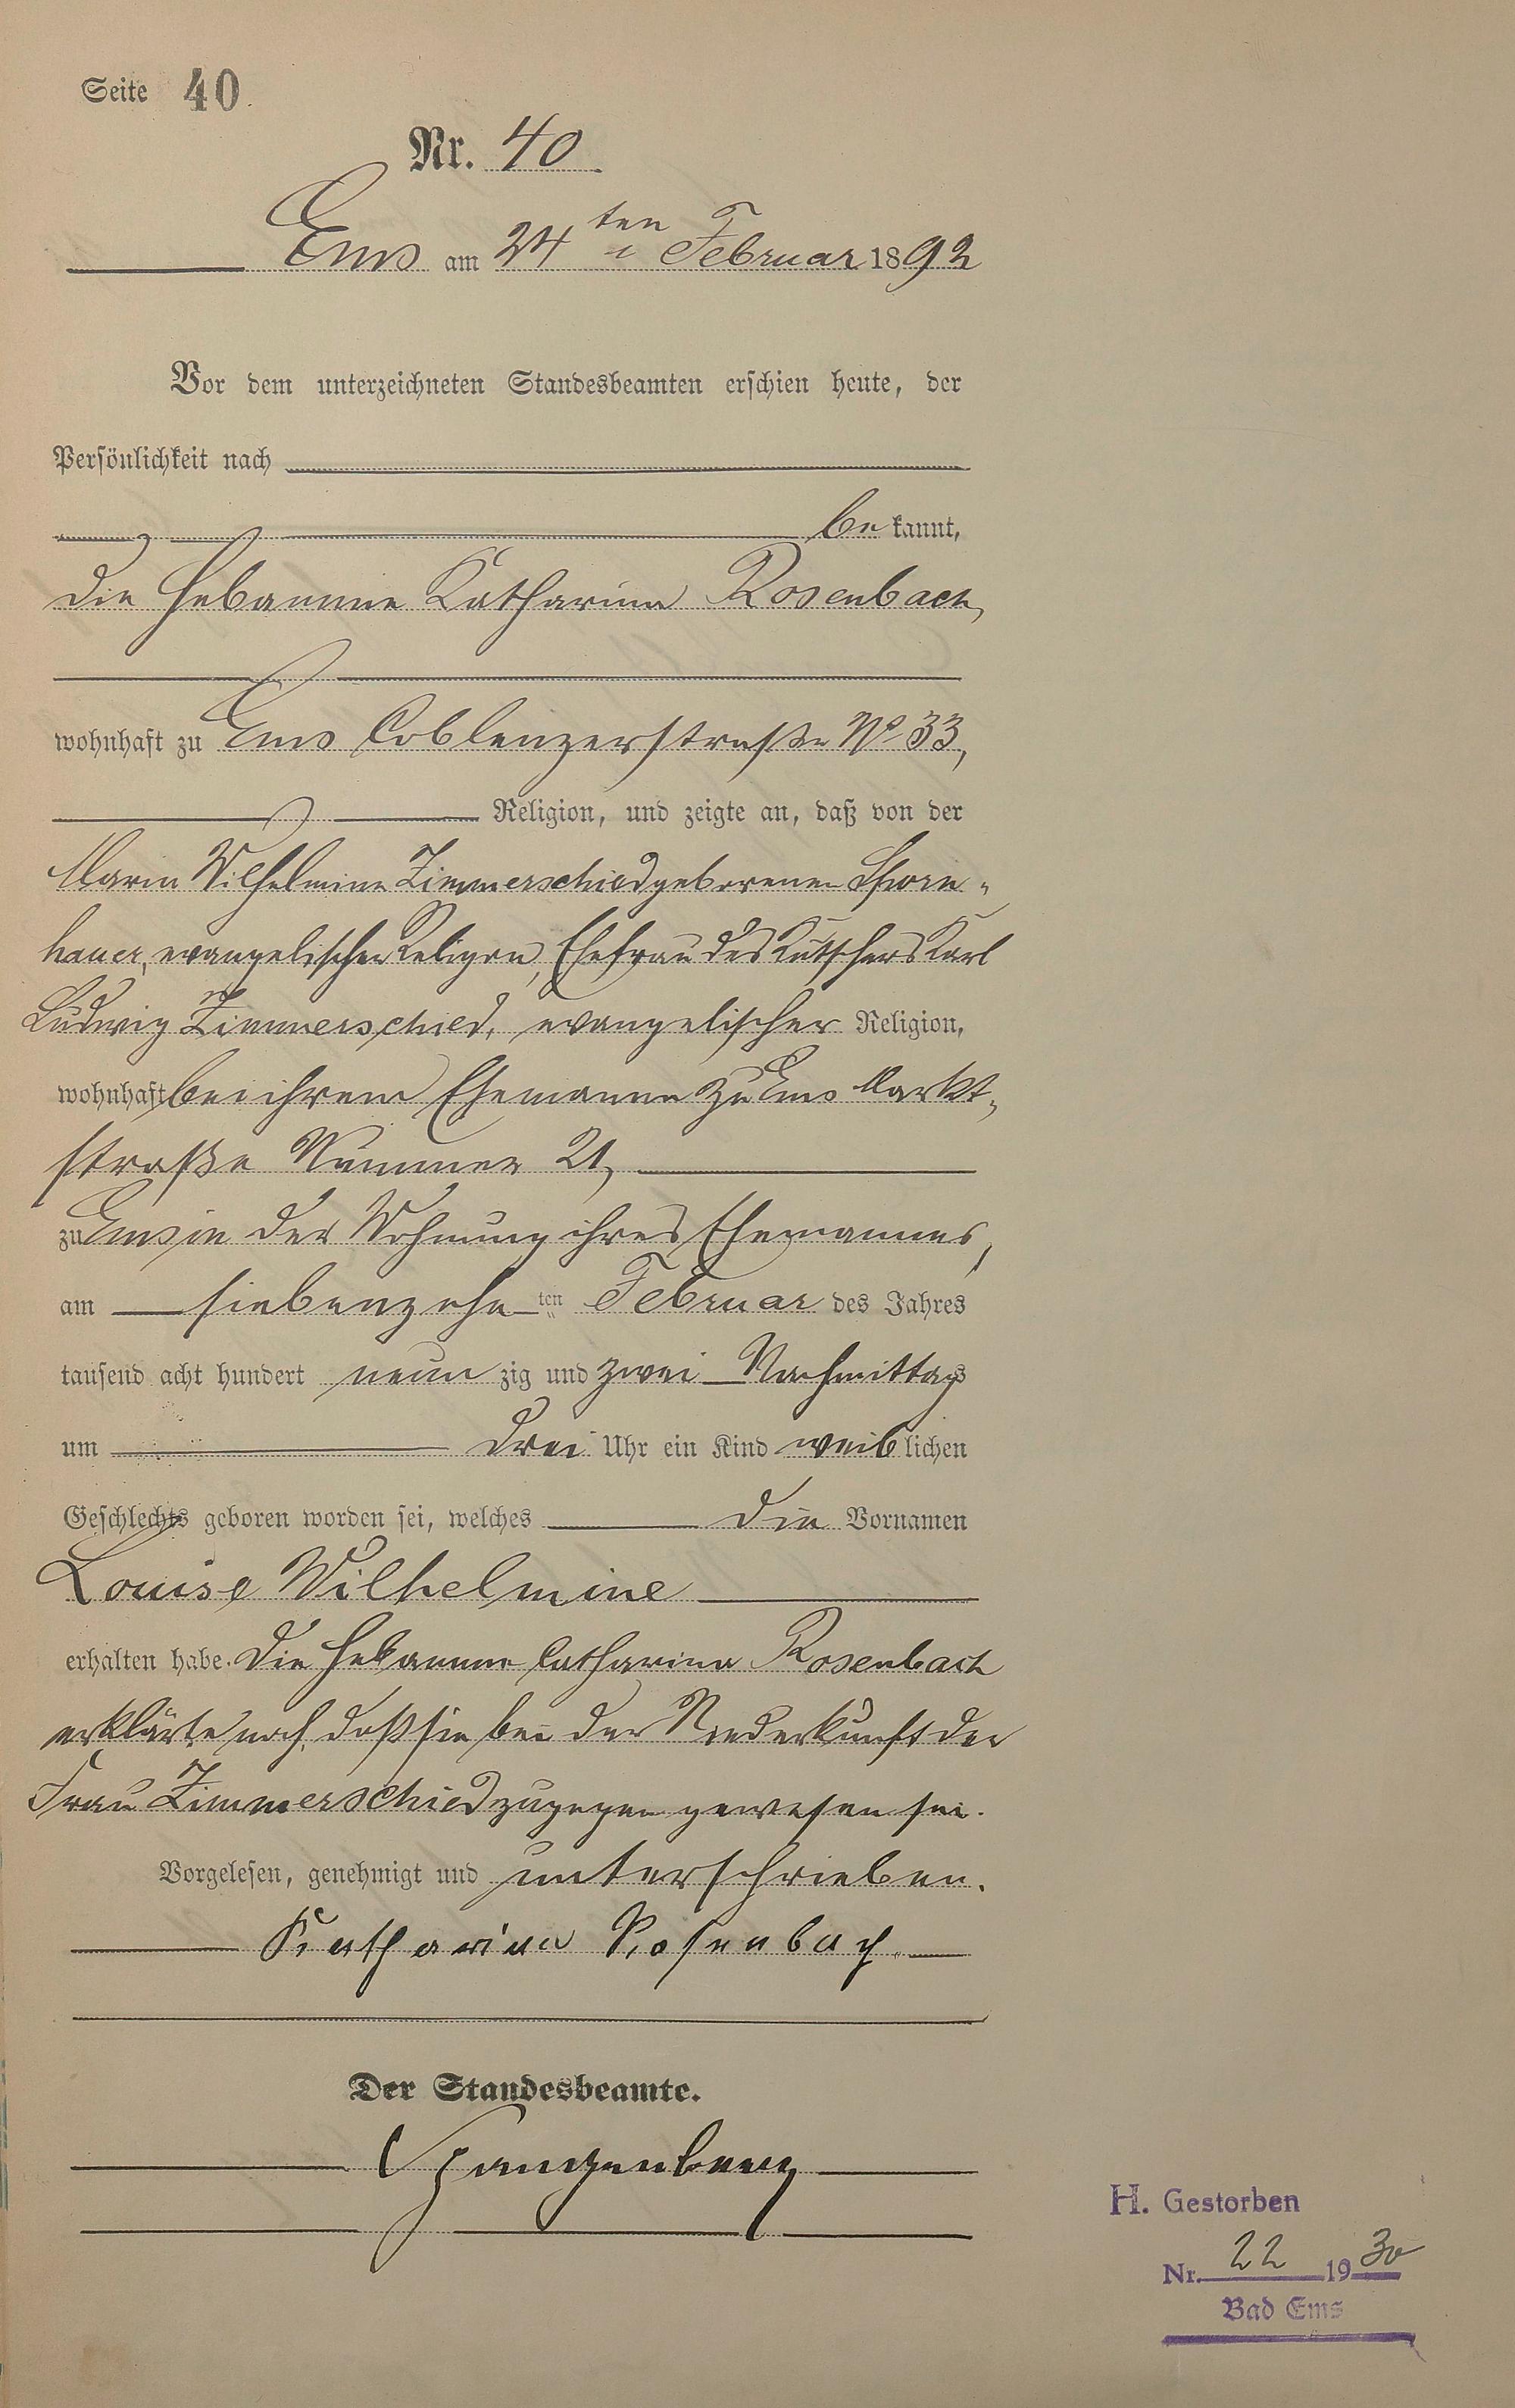 Seite 40.
Nr. 40
Ems am 24ten Februar 1892
Vor dem unterzeichneten Standesbeamten erschien heute, der
Persönlichkeit nach
be kannt,
die Hebamme Katharina Rosenbach,
wohnhaft zu Ems Coblenzerstraße No 33,
Religion, und zeigte an, daß von der
Maria Wilhelmine Zimmerschied geborenen
hauer, evangelischer Religion, Ehefrau des Kutschers Karl
Ludwig Zimmerschied, evangelischer Religion,
wohnhaft bei ihrem Ehemanne zu Ems Markt-
straße Nummer 21,
zu Ems in der Wohnung ihres Ehemannes,
am siebenzehn ten Februar des Jahres
tausend acht hundert neun zig und zwei Nachmittags
um drei Uhr ein Kind weib lichen
Geschlechts geboren worden sei, welches die Vornamen
Louise Wilhelmine
erhalten habe. Die Hebamme Catharina Rosenbach
erklärte noch, daß sie bei der Niederkunft der
Frau Zimmerschied zugegen gewesen sei.
Vorgelesen, genehmigt und unterschrieben.
Katharina Rosenbach.
Der Standesbeamte.
H. Gestorben
Nr. 22 1930
Bad Ems